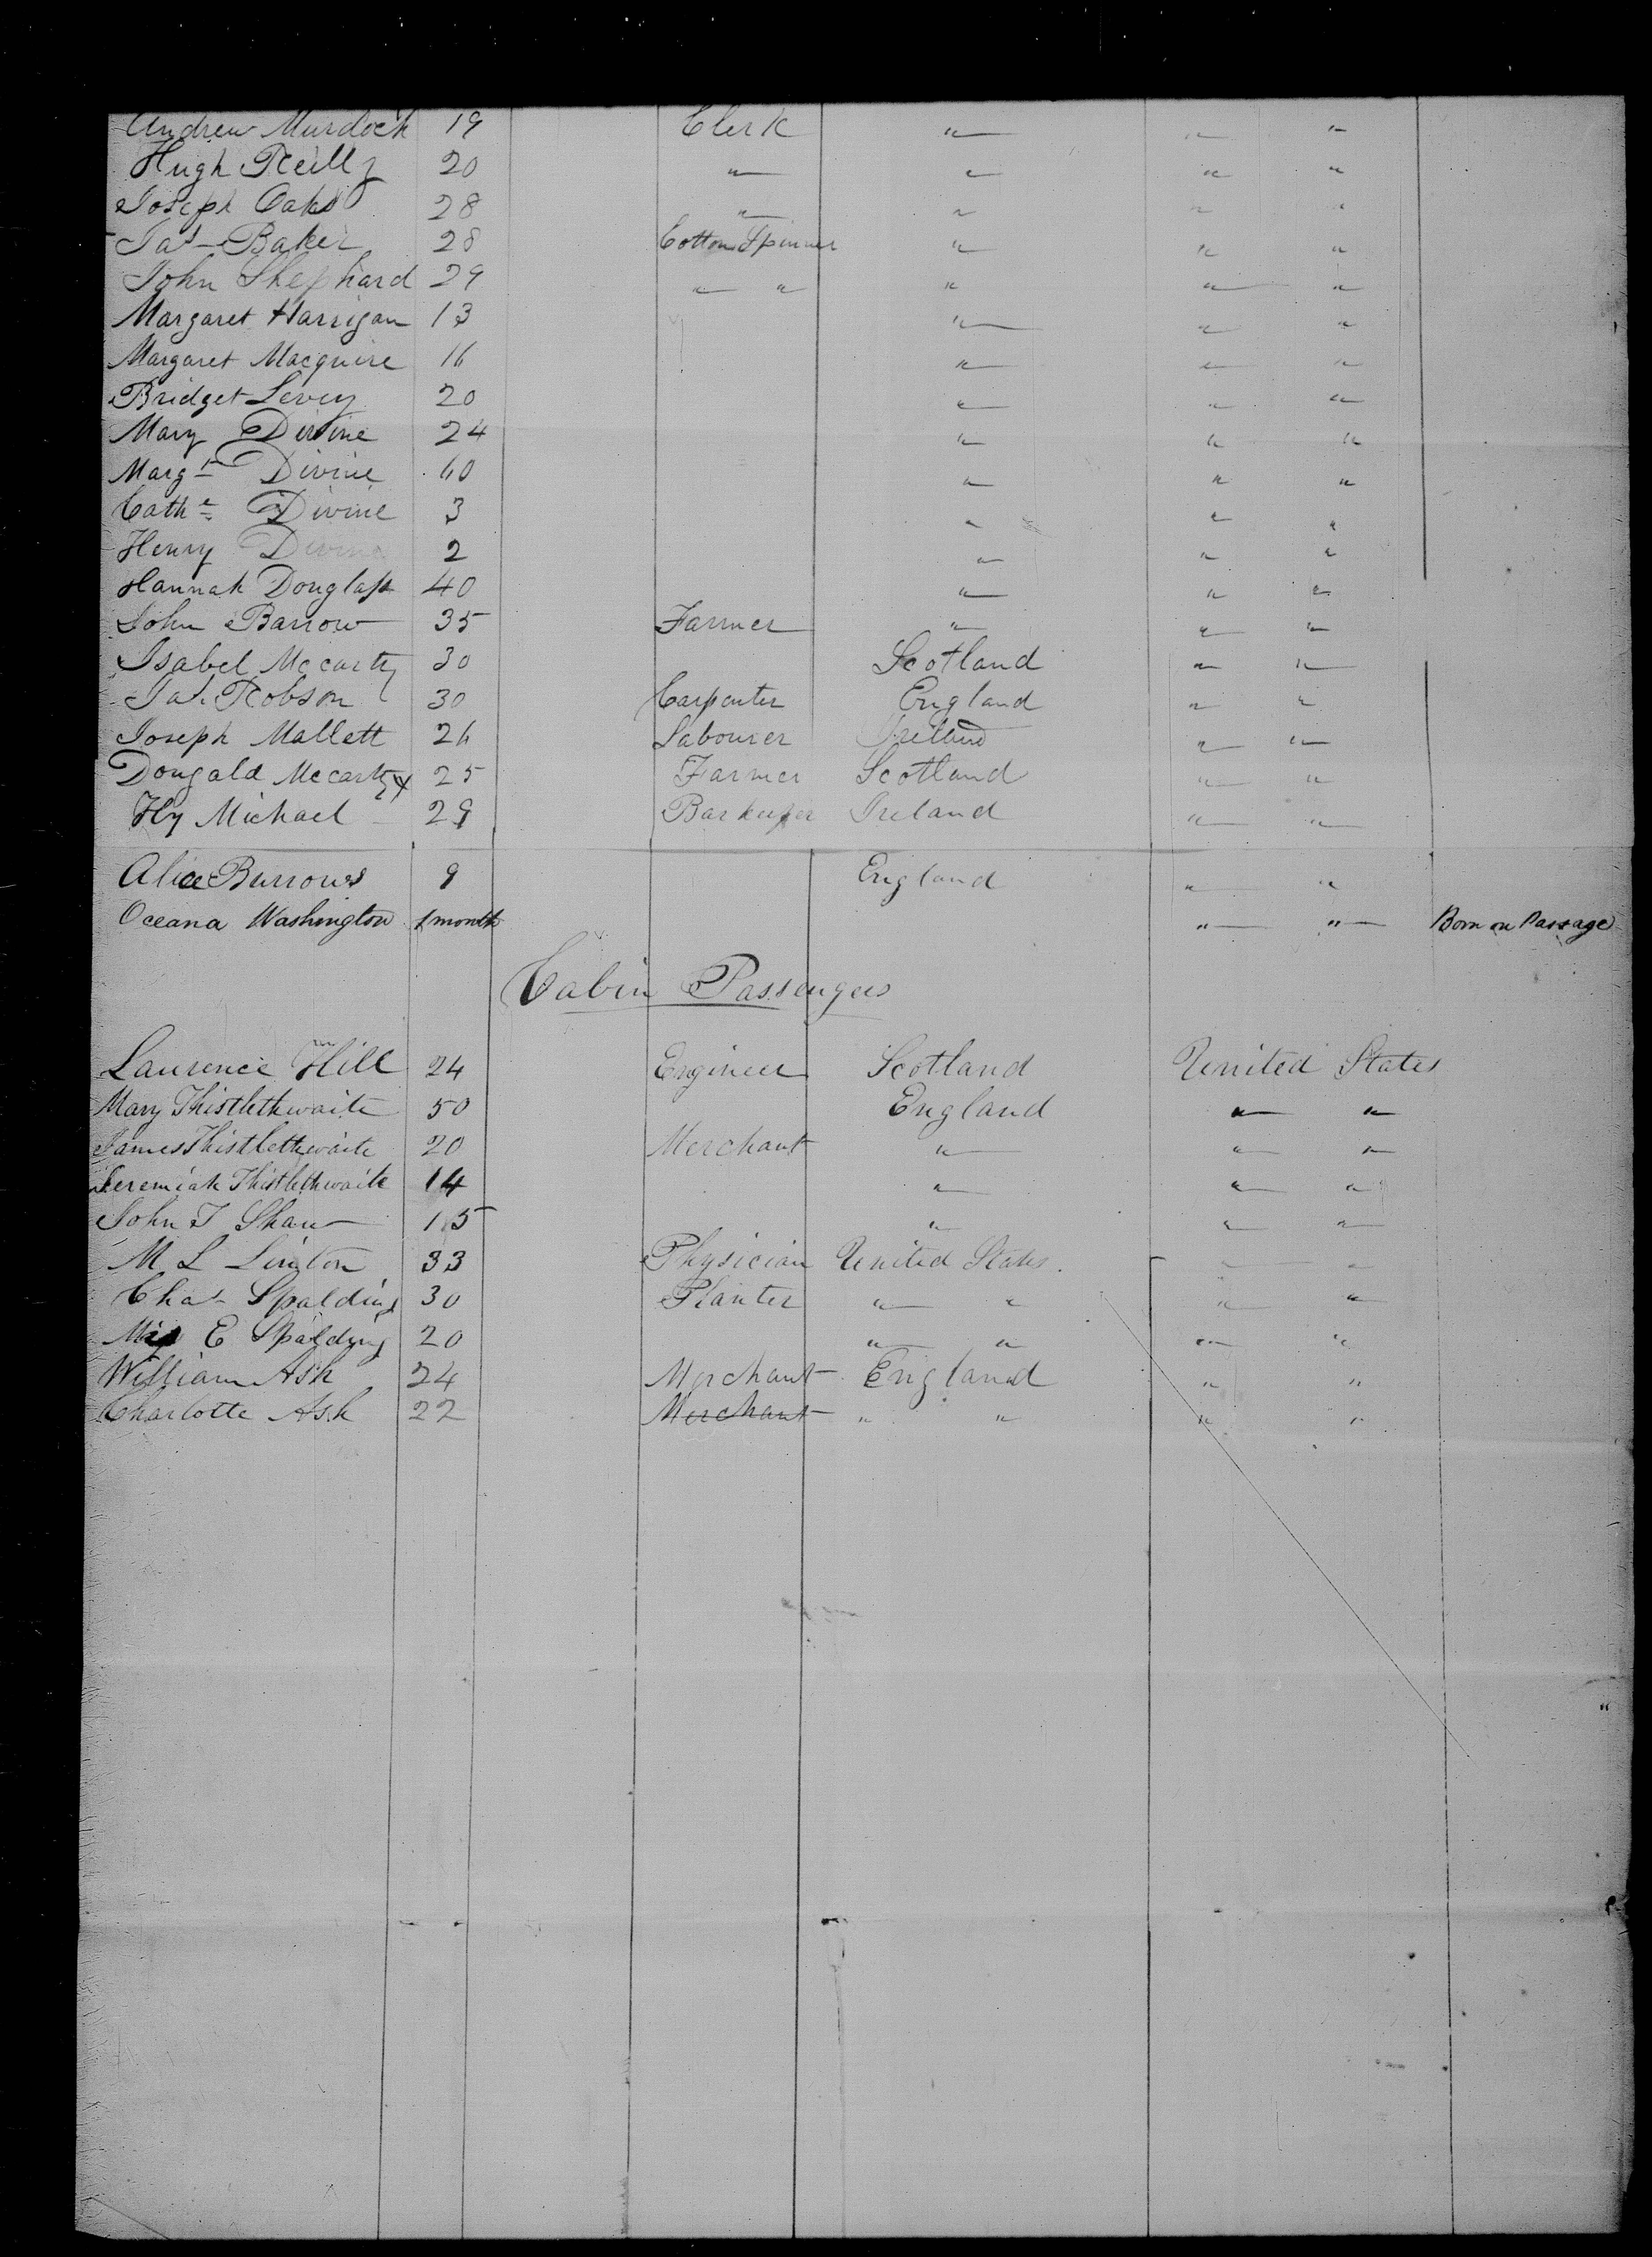 Andrew Murdock 19 Clerk " " "
Hugh Reilly 20 " " " "
Joseph Oaks 28 " " " "
Jas Baker 28 Cotton Spinner " " "
John Shephard 29 " " " " "
Margaret Harrigan 13 " " "
Margaret Macquire 16 " " "
Bridget Levey 20 " " "
Mary Divine 24 " " "
Margt Divine 60 " " "
Cathe Divine 3 " " "
Henry Divine 2 " " "
Hannah Douglass 40 " " "
John Barrow 35 Farmer " " "
Isabel Mccarty 30 Scotland " "
Jas Robson 30 Carpenter England " "
Joseph Mallett 26 Labourer Ireland " "
Dougald Mccarty 25 Farmer Scotland " "
Hy Michael 29 Barkeeper Ireland " "
Alice Burrows 9 England " "
Oceana Washington 1 month " " Born on Passage
Cabin Passengers
Laurence Hill 24 Engineer Scotland United States
Mary Thistlethwaite 50 England " "
James Thistlethwaite 20 Merchant " " "
Jeremiah Thistlethwaite 14 " " "
John T Shaw 15 " " "
M L Linton 33 Physician United States " "
Chas Spalding 30 Planter " " " "
E Spalding 20 " " " "
William Ash 24 Merchant England " "
Charlotte Ash 22 Merchant " " " "